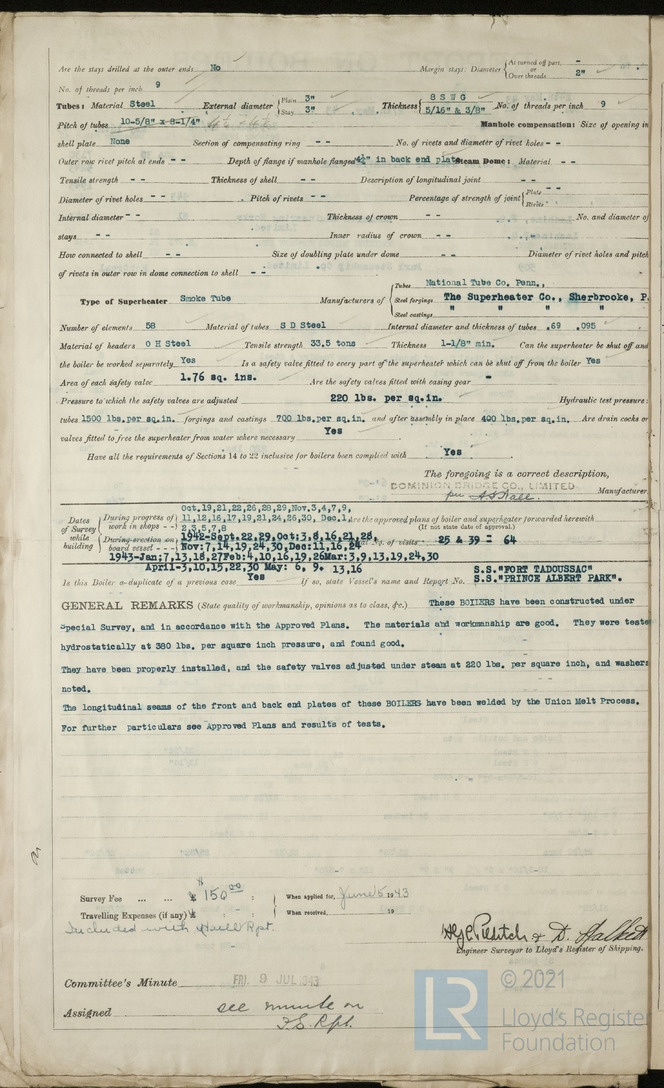 Are the stays drilled at the outer ends No Margin stays: Diameter { At turned off part, -
or
Over threads 2"
No. of threads per inch 9
Tubes: Material Steel External diameter { Plain 3" Thickness { 8 SWG No. of threads per inch 9
Stay 3" 5/16" & 3/8"
Pitch of tubes 10-5/8" x 8-1/4" Manhole compensation: Size of opening in
shell plate None Section of compensating ring - - No. of rivets and diameter of rivet holes - -
Outer row rivet pitch at ends - - Depth of flange if manhole flanged 4½" in back end plate Steam Dome: Material - -
Tensile strength - - Thickness of shell - - Description of longitudinal joint - -
Diameter of rivet holes - - Pitch of rivets - - Percentage of strength of joint { Plate - -
Rivets
Internal diameter - - Thickness of crown - - No. and diameter of
stays - - Inner radius of crown - -
How connected to shell - - Size of doubling plate under dome - - Diameter of rivet holes and pitch
of rivets in outer row in dome connection to shell - -
Type of Superheater Smoke Tube Manufacturers of { Tubes National Tube Co, Penn.,
Steel forgings The Superheater Co., Sherbrooke, P.
Steel castings " " "
Number of elements 58 Material of tubes S D Steel Internal diameter and thickness of tubes .69 .095
Material of headers O H Steel Tensile strength 33.5 tons Thickness 1-1/8" min. Can the superheater be shut off and
the boiler be worked separately Yes Is a safety valve fitted to every part of the superheater which can be shut off from the boiler Yes
Area of each safety valve 1.76 sq. ins. Are the safety valves fitted with easing gear -
Pressure to which the safety valves are adjusted 220 lbs. per sq.in. Hydraulic test pressure:
tubes 1500 lbs.per sq.in. forgings and castings 700 lbs.per sq.in. and after assembly in place 400 lbs.per sq.in. Are drain cocks or
valves fitted to free the superheater from water where necessary Yes
Have all the requirements of Sections 14 to 22 inclusive for boilers been complied with Yes
The foregoing is a correct description,
DOMINION BRIDGE CO., LIMITED
Manufacturer
Dates of Survey while building
During progress of work in shops - - Oct.19,21,22,26,28,29,Nov.3,4,7,9,
11,12,16,17,19,21,24,26,30, Dec.1,
2,3,5,7,8
Are the approved plans of boiler and superheater forwarded herewith
(If not state date of approval.)
During erection on board vessel - - - 1942-Sept.22,29,Oct:3,8,16,21,28,
Nov:7,14,19,24,30,Dec:11,16,24 No. of visits 25 & 39 = 64
1943-Jan:7,13,18,27Feb:4,10,16,19,26Mar:3,9,13,19,24,30
April-3,10,15,22,30 May: 6, 9. 13,16 S.S."FORT TADOUSSAC"
Is this Boiler a duplicate of a previous case Yes If so, state Vessel's name and Report No. S.S."PRINCE ALBERT PARK".
GENERAL REMARKS (State quality of workmanship, opinions as to class, &c.) These BOILERS have been constructed under
Special Survey, and in accordance with the Approved Plans. The materials and workmanship are good. They were teste
hydrostatically at 380 lbs. per square inch pressure, and found good.
They have been properly installed, and the safety valves adjusted under steam at 220 lbs. per square inch, and washers
noted.
The longitudinal seams of the front and back end plates of these BOILERS have been welded by the Union Melt Process.
For further particulars see Approved Plans and results of tests.
Survey Fee ... ... $ 150 00 : When applied for, June 5 1943
Travelling Expenses (if any) £ : : When received, 19
Included with Hull Rpt.
& D.
Engineer Surveyor to Lloyd's Register of Shipping.
Committee's Minute FRI. 9 JUL 1943
Assigned see minute on
F.E. Rpt.
LR
© 2021
Lloyd's Register
Foundation